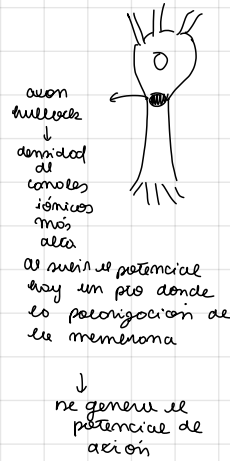 axon
hullock
↓
densidad
de
canales
iónicos
más
alta
al subir el potencial
hay un pto donde
la polarización de
la membrana
↓
se genera el
potencial de
axión